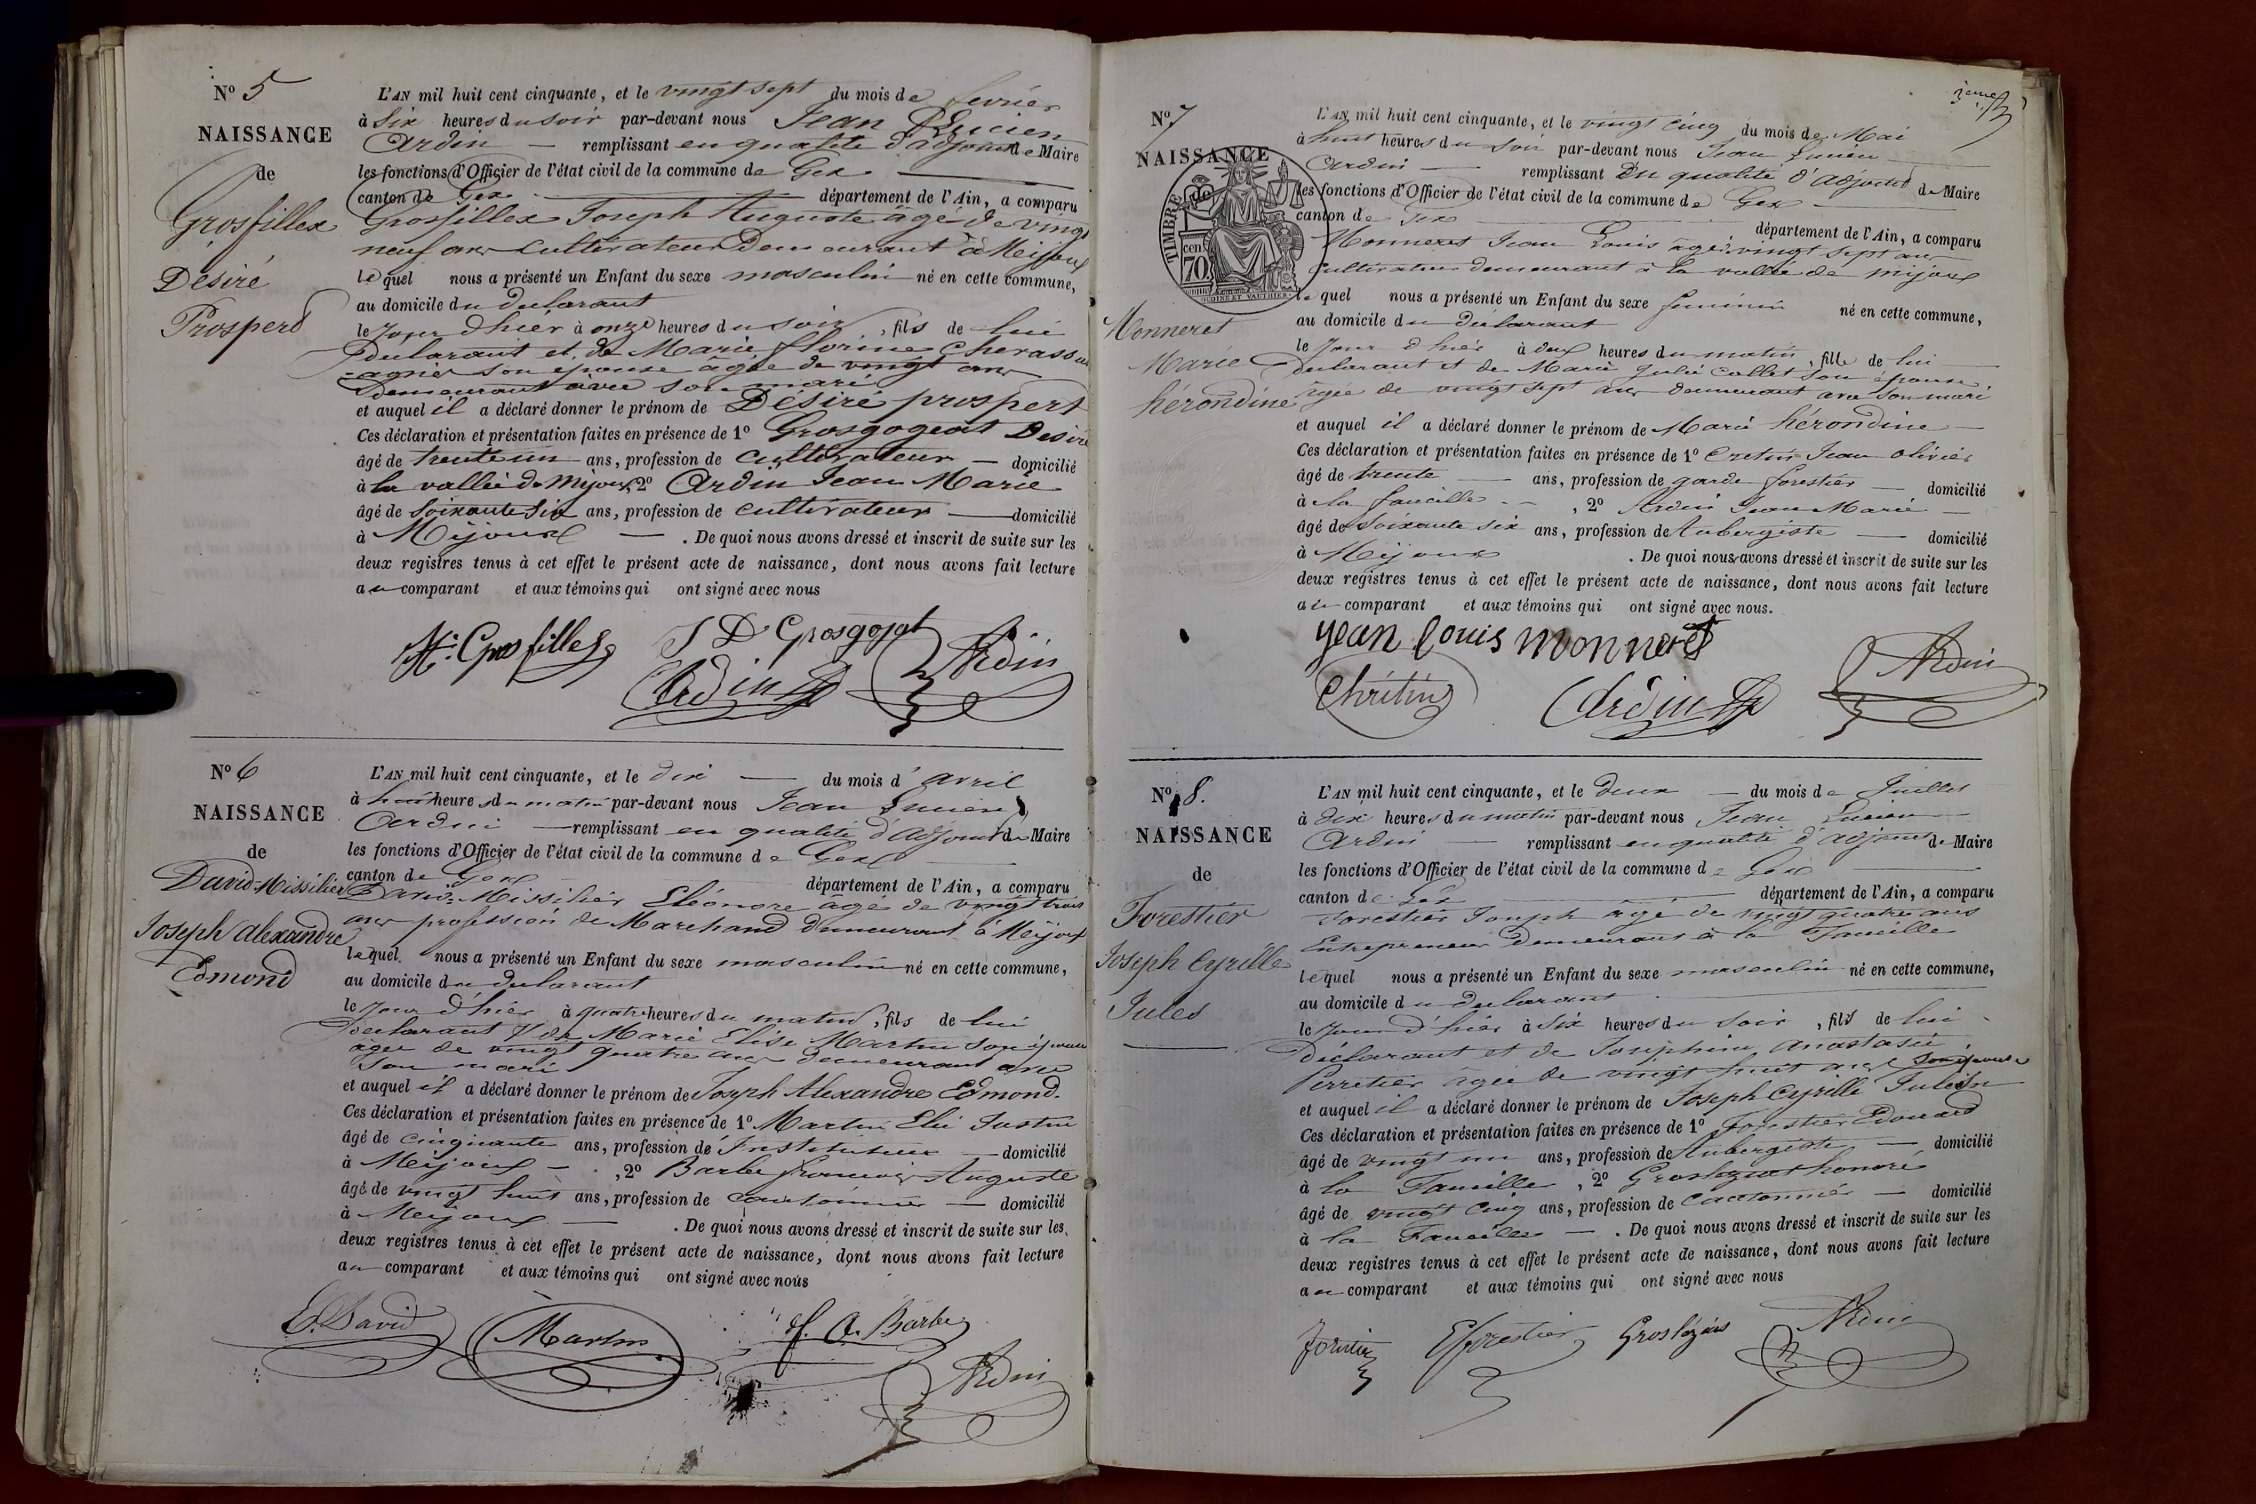 Nº 5
NAISSANCE
de
Grosfillex
Désiré
Prosperd
L'AN mil huit cent cinquante, et le vingt sept du mois de fevrier
à Six heures du soir par-devant nous Jean Lucien
Ardin — remplissant en qualité d'adjoint de Maire
les fonctions d'Officier de l'état civil de la commune de Gex —
canton de Gex — département de l'Ain, a comparu
Grosfillex Joseph Auguste âgé de vingt
neuf ans cultivateur Demeurant à Meijoux
lequel nous a présenté un Enfant du sexe masculin né en cette commune,
au domicile du declarant
le Jour d'hier à onze heures du soir, fils de lui
Declarant et de Marie florine Cherassu
-agnie son epouse âgée de vingt ans
Demeurant avec son mari
et auquel il a déclaré donner le prénom de Désiré prospert
Ces déclaration et présentation faites en présence de 1º Grosgogeat Desiré
âgé de trente un ans, profession de cultivateur — domicilié
à la vallée de Mijoux, 2º Ardin Jean Marie
âgé de Soixante Six ans, profession de cultivateur — domicilié
à Mijoux — . De quoi nous avons dressé et inscrit de suite sur les
deux registres tenus à cet effet le présent acte de naissance, dont nous avons fait lecture
au comparant et aux témoins qui ont signé avec nous
Grosfillex J D Grosgojat Ardin
Ardin
Nº 6
NAISSANCE
de
David-Missilier
Joseph Alexandre
Edmond
L'AN mil huit cent cinquante, et le dix — du mois d'avril
à huit heures du matin par-devant nous Jean Lucien
Ardin — remplissant en qualité d'Adjoint de Maire
les fonctions d'Officier de l'état civil de la commune de Gex —
canton de Gex département de l'Ain, a comparu
David-Missilier Eléonore âgé de vingt trois
ans profession de Marchand demeurant à Meijoux
lequel nous a présenté un Enfant du sexe masculin né en cette commune,
au domicile du declarant
le Jour d'hier à quatre heures du matin, fils de lui
Declarant & de Marie Elise Martin son épouse
âgée de vingt quatre ans demeurant avec
son mari
et auquel il a déclaré donner le prénom de Joseph Alexandre Edmond.
Ces déclaration et présentation faites en présence de 1º Martin Elie Justin
âgé de cinquante ans, profession de Instituteur — domicilié
à Meijoux — , 2º Barbe françois Auguste
âgé de vingt huit ans, profession de cantonnier — domicilié
à Meijoux — . De quoi nous avons dressé et inscrit de suite sur les
deux registres tenus à cet effet le présent acte de naissance, dont nous avons fait lecture
au comparant et aux témoins qui ont signé avec nous
E. David Martin f. A. Barbe
Ardin
3eme
Nº 7
NAISSANCE
de
TIMBRE
70 cen
OUDINÉ ET VAUTHIER
Monneret
Marie
hérondine
L'AN mil huit cent cinquante, et le vingt cinq du mois de Mai
à huit heures du soir par-devant nous Jean Lucien
Ardin — remplissant En qualité d'adjoint de Maire
les fonctions d'Officier de l'état civil de la commune de Gex —
canton de Gex — département de l'Ain, a comparu
Monneret Jean Louis âgé vingt sept ans
cultivateur demeurant à la vallée de mijoux
lequel nous a présenté un Enfant du sexe feminin né en cette commune,
au domicile du déclarant
le Jour d'hier à deux heures du matin, fille de lui
Declarant et de Marie Julie Collet son épouse,
âgée de vingt sept ans demeurant avec son mari
et auquel il a déclaré donner le prénom de Marie hérondine —
Ces déclaration et présentation faites en présence de 1º Cretin Jean Olivier
âgé de trente — ans, profession de garde forestier — domicilié
à la faucille — , 2º Ardin Jean Marie —
âgé de Soixante six ans, profession de Aubergiste — domicilié
à Meijoux . De quoi nous avons dressé et inscrit de suite sur les
deux registres tenus à cet effet le présent acte de naissance, dont nous avons fait lecture
au comparant et aux témoins qui ont signé avec nous.
jean louis monneret
Chrétin Ardin Ardin
Nº 8.
NAISSANCE
de
Forestier
Joseph Cyrille
Jules
L'AN mil huit cent cinquante, et le deux — du mois de Juillet
à dix heures du matin par-devant nous Jean Lucien —
Ardin — remplissant en qualité d'adjoint de Maire
les fonctions d'Officier de l'état civil de la commune de Gex —
canton de Gex — département de l'Ain, a comparu
Forestier Joseph âgé de vingt quatre ans
Entrepreneur Demeurant à la Faucille
lequel nous a présenté un Enfant du sexe masculin né en cette commune,
au domicile du declarant
le Jour d'hier à six heures du soir, fils de lui
Déclarant et de Joséphine Anastasie
Perretier âgée de vingt huit ans son épouse
et auquel il a déclaré donner le prénom de Joseph Cyrille Jules
Ces déclaration et présentation faites en présence de 1º Forestier Edouard
âgé de vingt un ans, profession de Aubergiste — domicilié
à la Faucille , 2º honoré
âgé de vingt cinq ans, profession de Cantonnier — domicilié
à la Faucille — . De quoi nous avons dressé et inscrit de suite sur les
deux registres tenus à cet effet le présent acte de naissance, dont nous avons fait lecture
au comparant et aux témoins qui ont signé avec nous
Eforestier Ardin